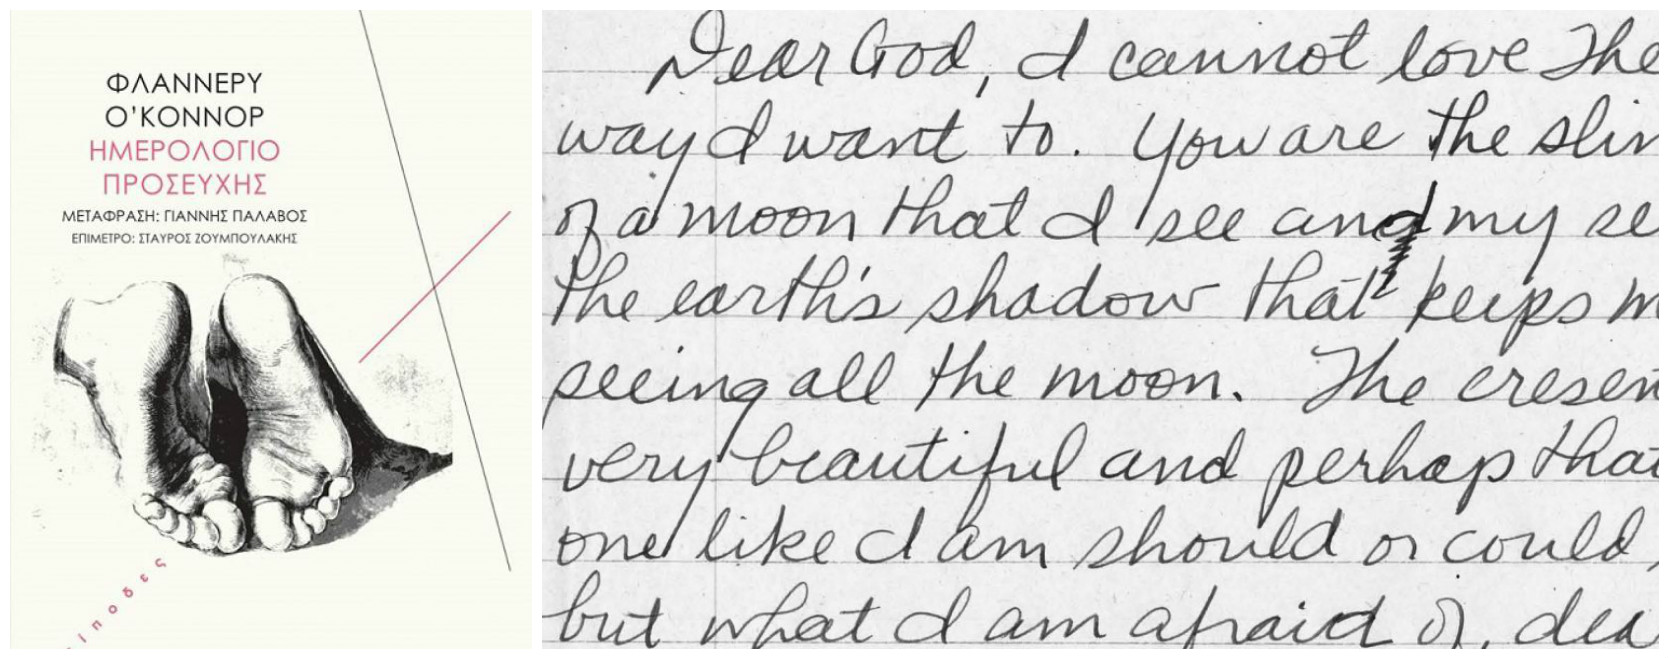 ΦΛΑΝΝΕΡΥ
Ο'ΚΟΝΝΟΡ
ΗΜΕΡΟΛΟΓΙΟ
ΠΡΟΣΕΥΧΗΣ
ΜΕΤΑΦΡΑΣΗ: ΓΙΑΝΝΗΣ ΠΑΛΑΒΟΣ
ΕΠΙΜΕΤΡΟ: ΣΤΑΥΡΟΣ ΖΟΥΜΠΟΥΛΑΚΗΣ
ίποδες
Dear God, I cannot love Thee
way I want to. You are the slim
of a moon that I see and my se
the earth's shadow that keeps m
seeing all the moon. The cresen
very beautiful and perhap that
one like I am should or could
but what I am afraid of, dea